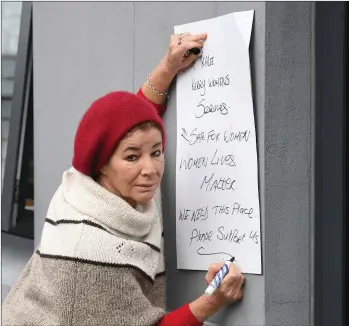 Kerry Womens
Services
Safe For Women
Women Lives
Matter
We Need This Place
Please Support Us